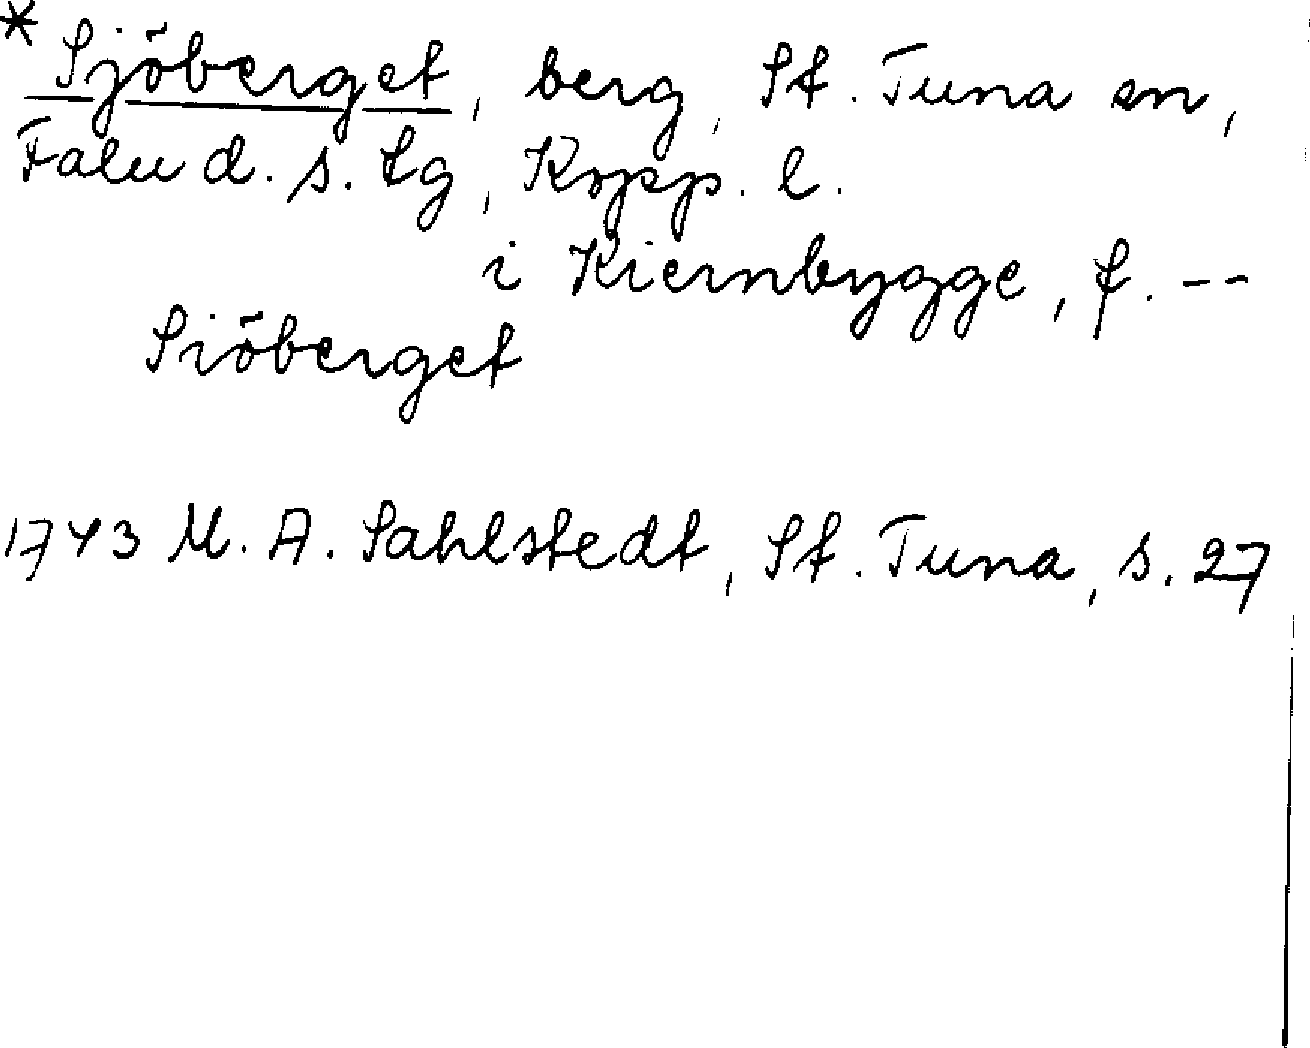 * Sjöberget, berg, St. Tuna sn,
Falu d. s. tg, Kopp. l.
i Kiernbygge, f. --
Siöberget
1743 M. A. Sahlstedt, St. Tuna, s. 27